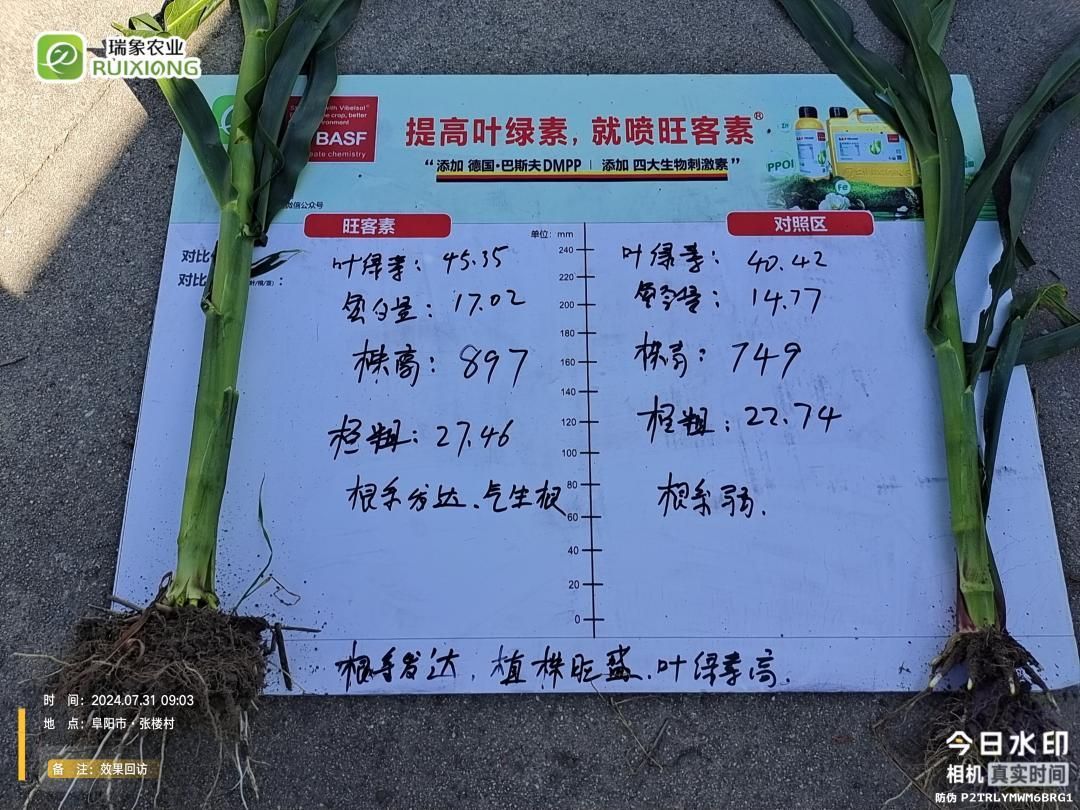 瑞象农业
RUIXIANG
with Vibelsol®
crop, better
BASF
create chemistry
提高叶绿素，就喷旺客素®
“添加 德国·巴斯夫DMPP | 添加 四大生物刺激素”
PPOI
Fe
微信公众号
旺客素
单位：mm
对照区
对比
对比
叶绿素：45.35
氮含量：17.02
株高：897
茎粗：27.46
根系发达、气生根
240
220
200
180
160
140
120
100
80
60
40
20
0
叶绿素：40.42
氮含量：14.77
株高：749
茎粗：22.74
根系弱.
根系发达，植株旺盛.叶绿素高.
时 间：2024.07.31 09:03
地 点：阜阳市·张楼村
备 注：效果回访
今日水印
相机 真实时间
防伪 P2TRLYMWM6BRG1